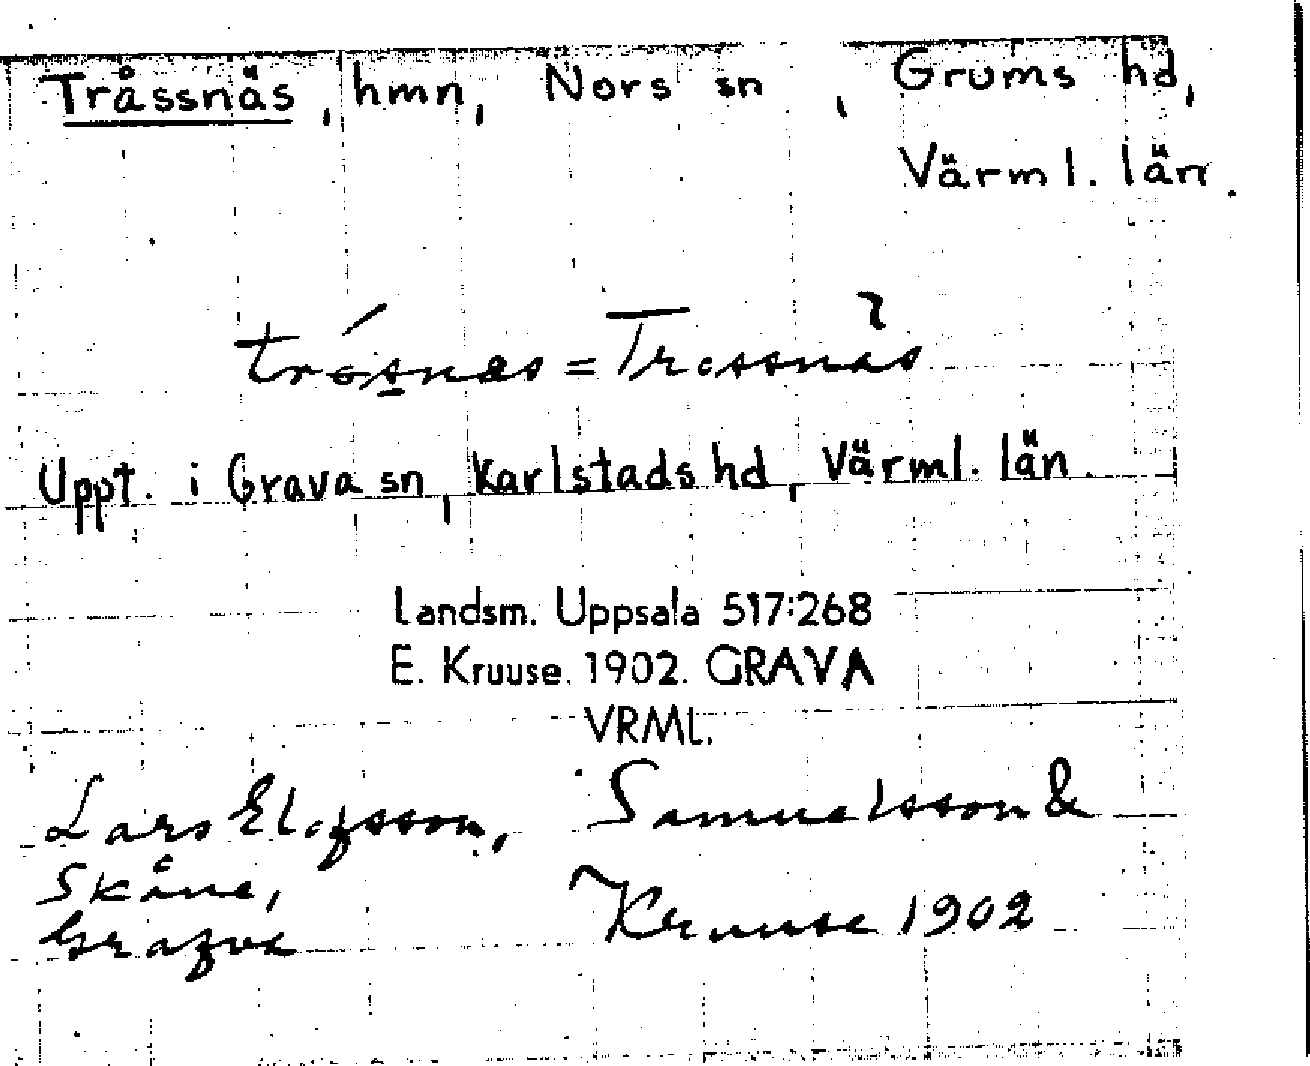 Tråssnäs, hmn, Nors sn, Grums hd,
Värml. län.
trósnäs = Trossnäs
Uppt. i Grava sn, Karlstads hd, Värml. län.
Landsm. Uppsala 517:268
E. Kruuse. 1902. GRAVA
VRML.
Lars Elofsson, Samuelsson &
Skåne,
Grafva Kruuse 1902